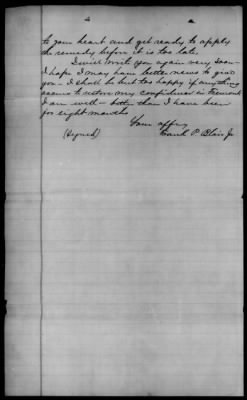 to your heart and get ready to apply
the remedy before it is too late.
I will write you again very soon—
I hope I may have better news to give
you— I shall be but too happy if anything
occurs to restore my confidence in Fremont
I am well— better than I have been
for eight months
Your affec
(Signed) Frank P. Blair Jr